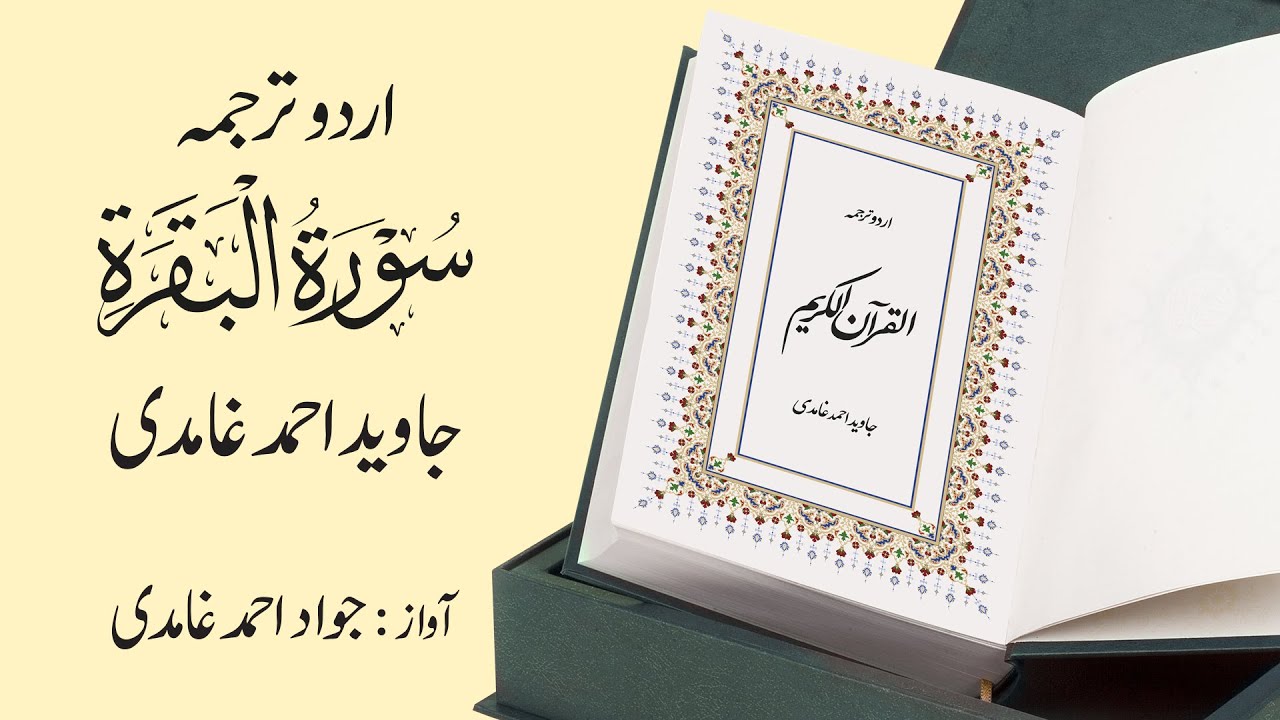 اردو ترجمہ
سُوْرَةُ الْبَقَرَة
جاوید احمد غامدی
آواز : جواد احمد غامدی
اردو ترجمہ
القرآن الکریم
جاوید احمد غامدی